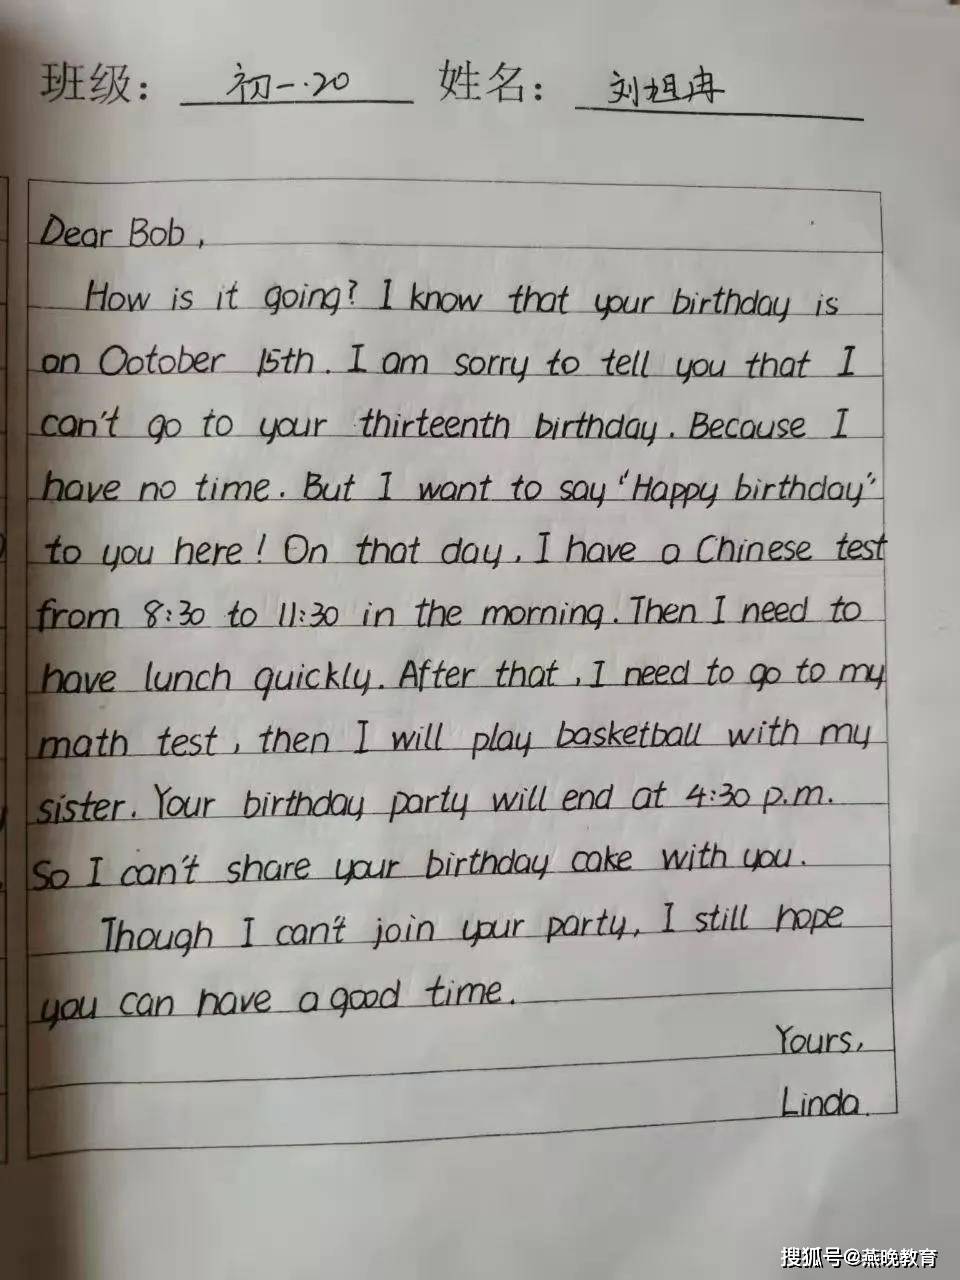 班级：初一.20 姓名：刘旭冉
Dear Bob,
How is it going? I know that your birthday is
on October 15th. I am sorry to tell you that I
can't go to your thirteenth birthday. Because I
have no time. But I want to say "Happy birthday"
to you here! On that day, I have a Chinese test
from 8:30 to 11:30 in the morning. Then I need to
have lunch quickly. After that, I need to go to my
math test, then I will play basketball with my
sister. Your birthday party will end at 4:30 p.m.
So I can't share your birthday cake with you.
Though I can't join your party, I still hope
you can have a good time.
Yours,
Linda.
搜狐号@燕晚教育